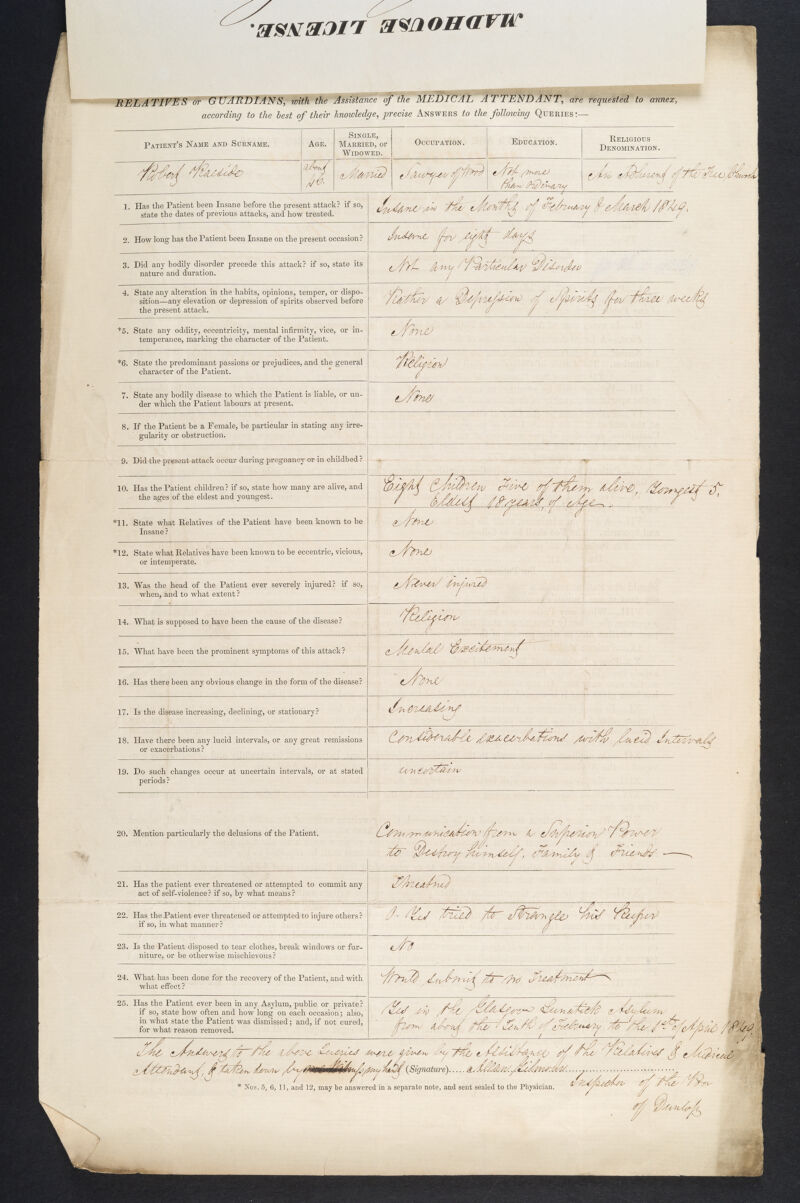 MADHOUSE LICENSE.
RELATIVES or GUARDIANS, with the Assistance of the MEDICAL ATTENDANT, are requested to annex,
according to the best of their knowledge, precise ANSWERS to the following QUERIES:—
PATIENT'S NAME AND SURNAME. AGE. SINGLE, MARRIED, OR WIDOWED. OCCUPATION. EDUCATION. RELIGIOUS DENOMINATION.
Robert about Married Sawyer of Wood Not more than ordinary An Adherent of the Free Church
1. Has the Patient been Insane before the present attack? if so,
state the dates of previous attacks, and how treated.
Insane in the Months of February & March 1849.
2. How long has the Patient been Insane on the present occasion?
Insane for eight days
3. Did any bodily disorder precede this attack? if so, state its
nature and duration.
Not any Particular Disorder
4. State any alteration in the habits, opinions, temper, or dispo-
sition—any elevation or depression of spirits observed before
the present attack.
Rather a Depression of Spirits for three weeks
*5. State any oddity, eccentricity, mental infirmity, vice, or in-
temperance, marking the character of the Patient.
None
*6. State the predominant passions or prejudices, and the general
character of the Patient.
Religion
7. State any bodily disease to which the Patient is liable, or un-
der which the Patient labours at present.
None
8. If the Patient be a Female, be particular in stating any irre-
gularity or obstruction.
9. Did the present attack occur during pregnancy or in childbed?
10. Has the Patient children? if so, state how many are alive, and
the ages of the eldest and youngest.
Eight Children Five of them alive, Youngest 5,
Eldest 18 years, of Age.
*11. State what Relatives of the Patient have been known to be
Insane?
None
*12. State what Relatives have been known to be eccentric, vicious,
or intemperate.
None
13. Was the head of the Patient ever severely injured? if so,
when, and to what extent?
Never injured
14. What is supposed to have been the cause of the disease?
Religion
15. What have been the prominent symptoms of this attack?
Mental Excitement
16. Has there been any obvious change in the form of the disease?
None
17. Is the disease increasing, declining, or stationary?
Increasing
18. Have there been any lucid intervals, or any great remissions
or exacerbations?
Considerable exacerbations with lucid Intervals
19. Do such changes occur at uncertain intervals, or at stated
periods?
uncertain
20. Mention particularly the delusions of the Patient.
Communication from a Superior Power
to Destroy himself, Family & Friends —
21. Has the patient ever threatened or attempted to commit any
act of self-violence? if so, by what means?
Threatned
22. Has the Patient ever threatened or attempted to injure others?
if so, in what manner?
Yes tried to Strangle his Keeper
23. Is the Patient disposed to tear clothes, break windows or fur-
niture, or be otherwise mischievous?
No
24. What has been done for the recovery of the Patient, and with
what effect?
Would submit to no Treatment
25. Has the Patient ever been in any Asylum, public or private?
if so, state how often and how long on each occasion; also,
in what state the Patient was dismissed; and, if not cured,
for what reason removed.
Yes in the Glasgow Lunatick Asylum
from about the Tenth of February to the 1st of April 1849
The Answers to the above Queries were given by the Assistance of the Relatives & Medical
Attendant, & taken down by (Signature)
* Nos. 5, 6, 11, and 12, may be answered in a separate note, and sent sealed to the Physician.
Inspector of the
of Dunlop